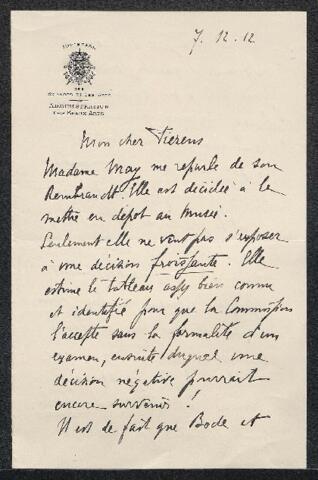 7. 12. 12
MINISTÈRE
DES
SCIENCES ET DES ARTS
ADMINISTRATION
DES BEAUX-ARTS
Mon cher Fierens
Madame May me reparle de son
Rembrandt. Elle est décidée à le
mettre en dépot au musée.
Seulement elle ne veut pas s'exposer
à une décision froissante. Elle
estime le tableau assez bien connu
et identifié pour que la Commission
l'accepte sans la formalité d'un
examen, ensuite duquel une
décision négative pourrait
encore survenir !
Il est de fait que Bode et